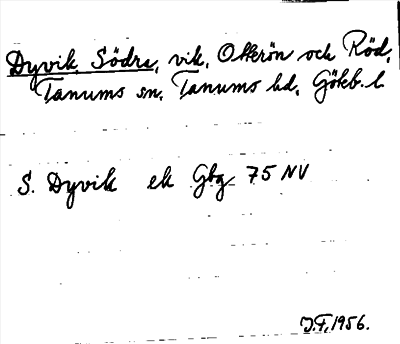 Dyvik, Södra, vik, Otterön och Röd,
Tanums sn, Tanums hd, Göteb. l.
S. Dyvik ek Gbg 75 NV
J.F. 1956.